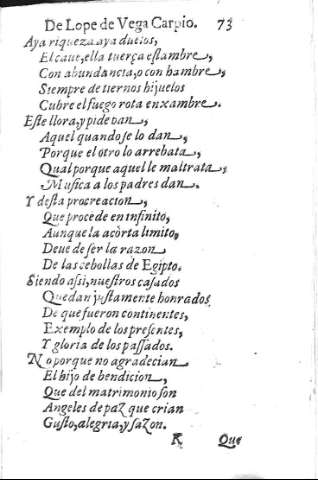 De Lope de Vega Carpio. 73
Aya riqueza aya duelos,
El caue, ella tuerça estambre,
Con abundancia, o con hambre,
Siempre de tiernos hijuelos
Cubre el fuego rota enxambre.
Este llora, y pide pan,
Aquel quando se lo dan,
Porque el otro lo arrebata,
Qual porque aquel le maltrata,
Musica a los padres dan.
Y desta procreacion,
Que procede en infinito,
Aunque la acòrta limito,
Deue de ser la razon
De las cebollas de Egipto.
Siendo assi, nuestros casados
Quedan justamente honrados
De que fueron continentes,
Exemplo de los presentes,
Y gloria de los passados.
No porque no agradecian
El hijo de bendicion,
Que del matrimonio son
Angeles de paz que crian
Gusto, alegria, y sazon.
K Que